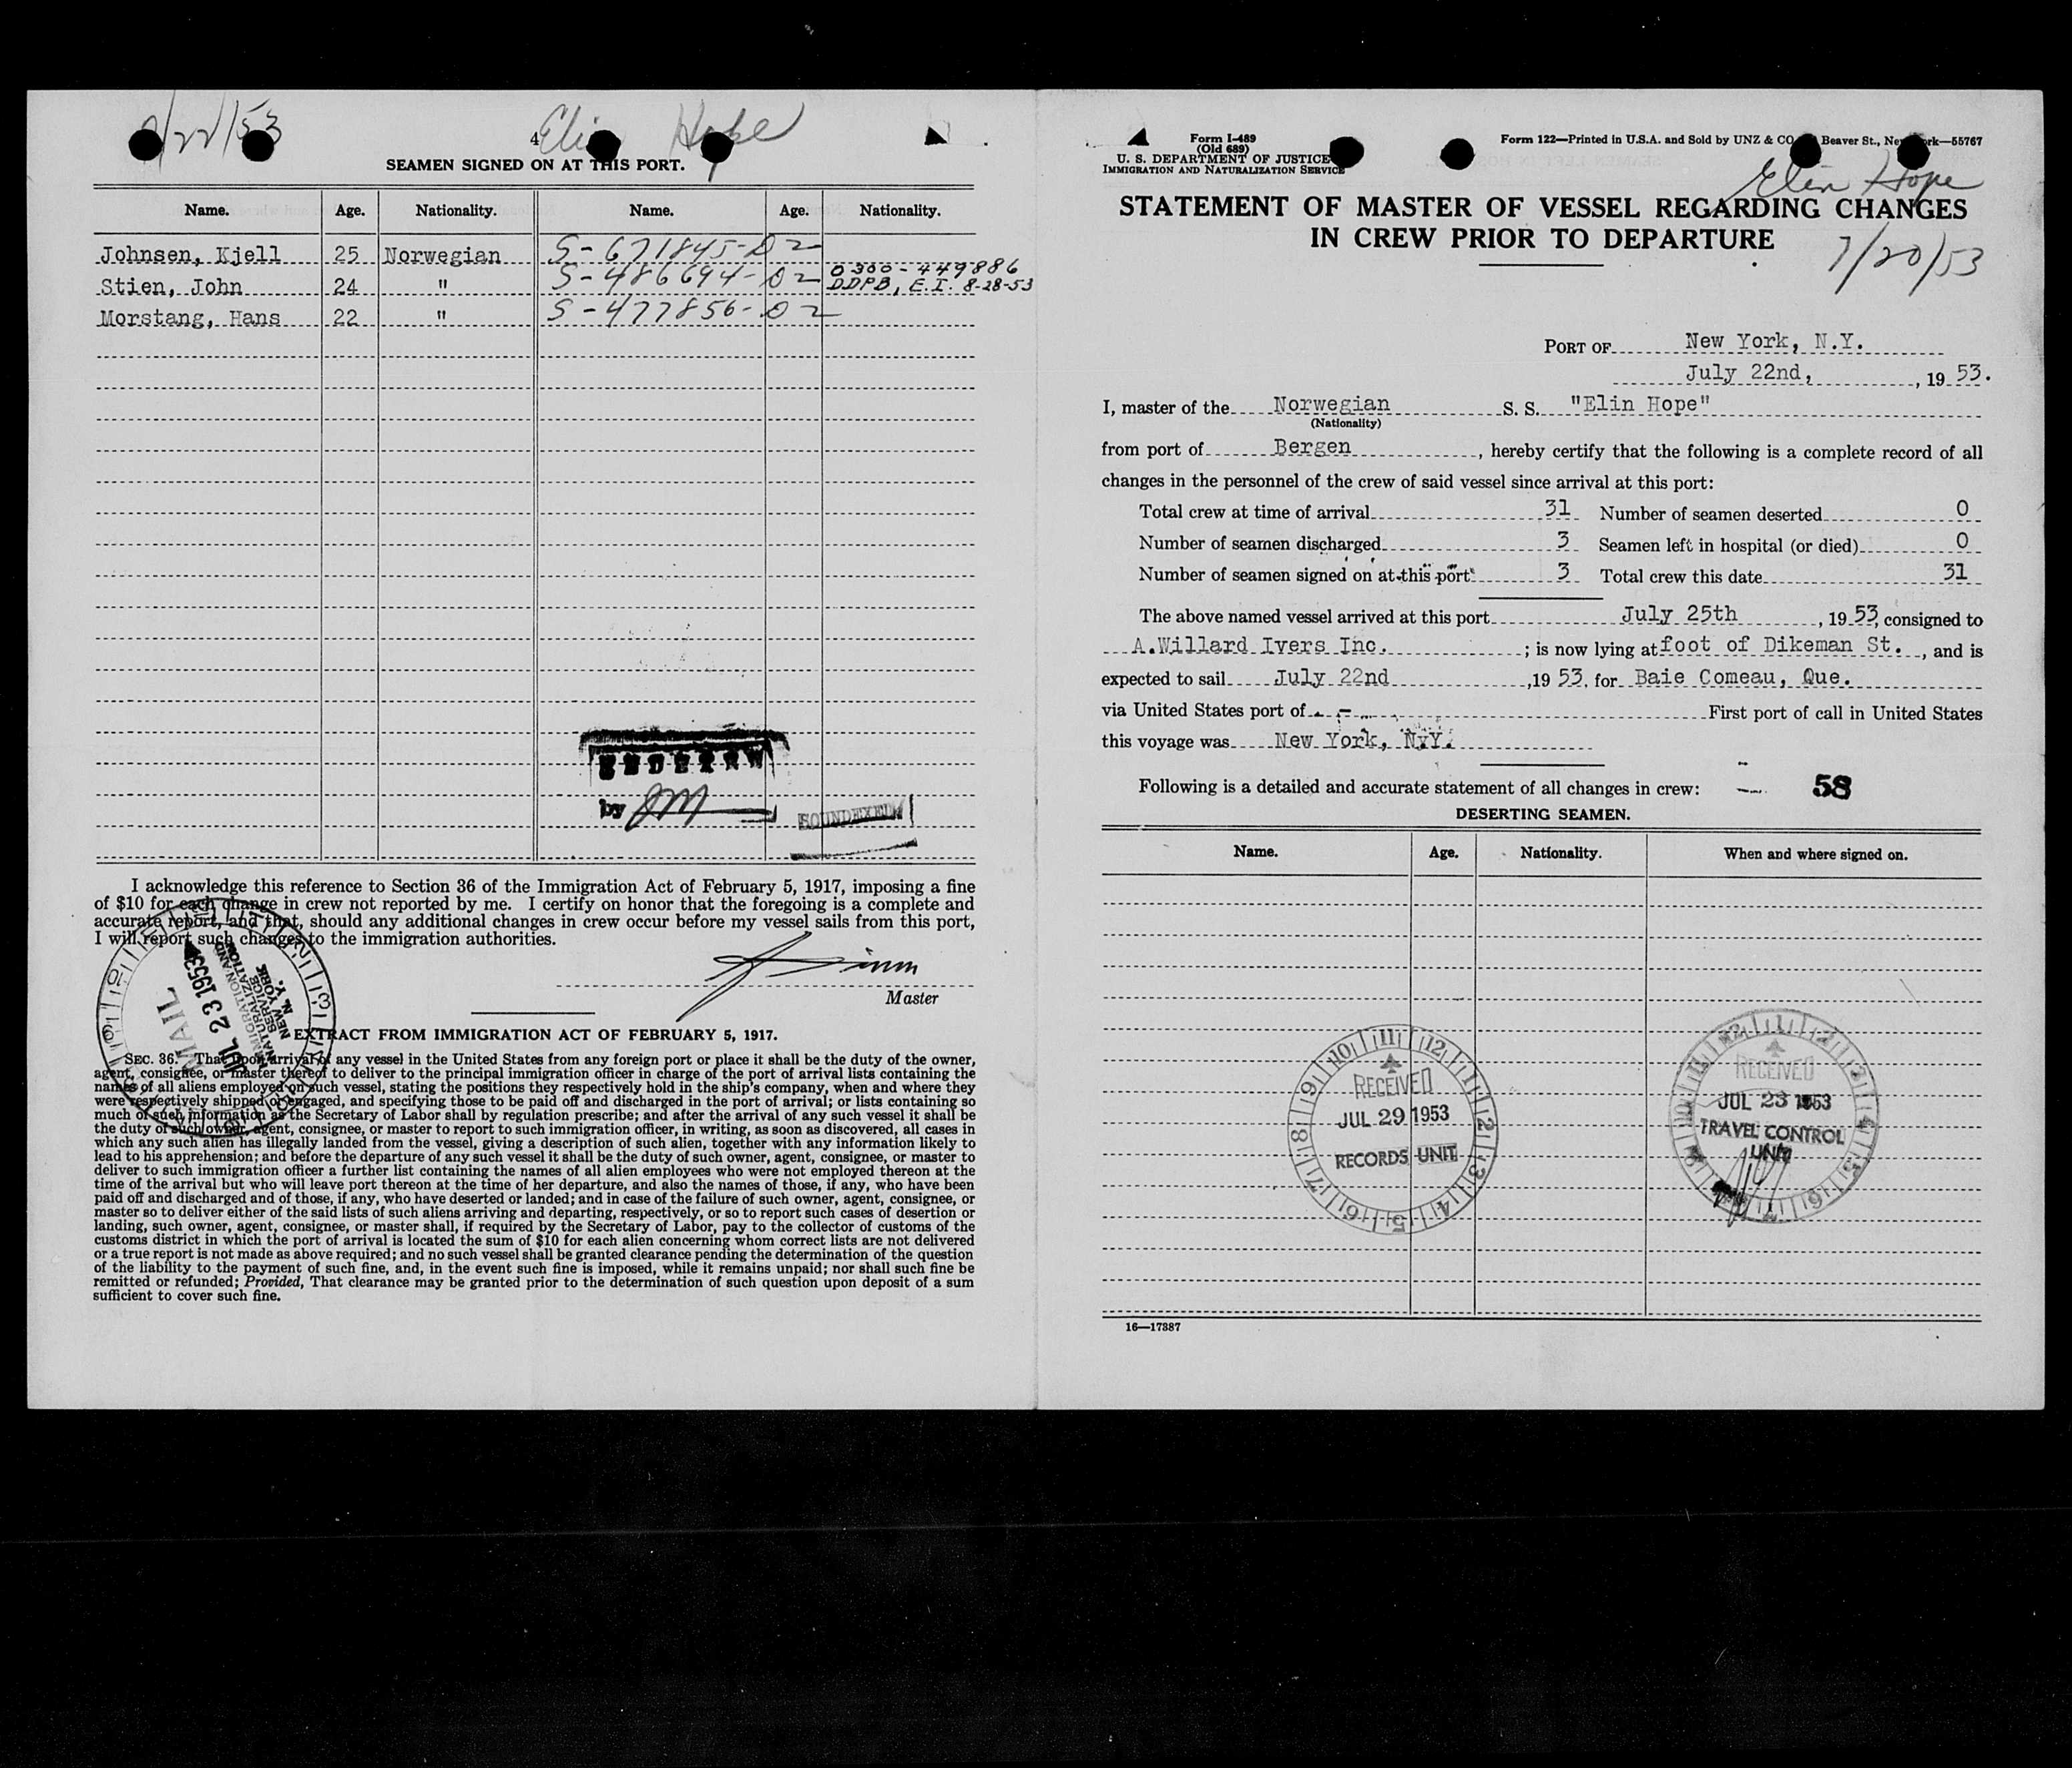 /22/53
4
Elin Hope
SEAMEN SIGNED ON AT THIS PORT.
Name. Age. Nationality. Name. Age. Nationality.
Johnsen, Kjell 25 Norwegian S-671845-D2
Stien, John 24 " S-486694-D2 0300-449886
DDPB, E.I. 8-28-53
Morstang, Hans 22 " S-477856-D2
by JM
SOUNDEXED
I acknowledge this reference to Section 36 of the Immigration Act of February 5, 1917, imposing a fine
of $10 for each change in crew not reported by me. I certify on honor that the foregoing is a complete and
accurate report, and that, should any additional changes in crew occur before my vessel sails from this port,
I will report such changes to the immigration authorities.
Master
MAIL
JUL 23 1953
IMMIGRATION AND
NATURALIZATION
SERVICE
NEW YORK
N. Y.
EXTRACT FROM IMMIGRATION ACT OF FEBRUARY 5, 1917.
SEC. 36. That upon arrival of any vessel in the United States from any foreign port or place it shall be the duty of the owner,
agent, consignee, or master thereof to deliver to the principal immigration officer in charge of the port of arrival lists containing the
names of all aliens employed on such vessel, stating the positions they respectively hold in the ship's company, when and where they
were respectively shipped or engaged, and specifying those to be paid off and discharged in the port of arrival; or lists containing so
much of such information as the Secretary of Labor shall by regulation prescribe; and after the arrival of any such vessel it shall be
the duty of such owner, agent, consignee, or master to report to such immigration officer, in writing, as soon as discovered, all cases in
which any such alien has illegally landed from the vessel, giving a description of such alien, together with any information likely to
lead to his apprehension; and before the departure of any such vessel it shall be the duty of such owner, agent, consignee, or master to
deliver to such immigration officer a further list containing the names of all alien employees who were not employed thereon at the
time of the arrival but who will leave port thereon at the time of her departure, and also the names of those, if any, who have been
paid off and discharged and of those, if any, who have deserted or landed; and in case of the failure of such owner, agent, consignee, or
master so to deliver either of the said lists of such aliens arriving and departing, respectively, or so to report such cases of desertion or
landing, such owner, agent, consignee, or master shall, if required by the Secretary of Labor, pay to the collector of customs of the
customs district in which the port of arrival is located the sum of $10 for each alien concerning whom correct lists are not delivered
or a true report is not made as above required; and no such vessel shall be granted clearance pending the determination of the question
of the liability to the payment of such fine, and, in the event such fine is imposed, while it remains unpaid; nor shall such fine be
remitted or refunded; Provided, That clearance may be granted prior to the determination of such question upon deposit of a sum
sufficient to cover such fine.
Form I-489
(Old 689)
U. S. DEPARTMENT OF JUSTICE
IMMIGRATION AND NATURALIZATION SERVICE
Form 122—Printed in U.S.A. and Sold by UNZ & CO Beaver St., New York—55767
Elin Hope
STATEMENT OF MASTER OF VESSEL REGARDING CHANGES
IN CREW PRIOR TO DEPARTURE
7/20/53
PORT OF New York, N.Y.
July 22nd, , 19 53.
I, master of the Norwegian S. S. "Elin Hope"
(Nationality)
from port of Bergen , hereby certify that the following is a complete record of all
changes in the personnel of the crew of said vessel since arrival at this port:
Total crew at time of arrival 31 Number of seamen deserted 0
Number of seamen discharged 3 Seamen left in hospital (or died) 0
Number of seamen signed on at this port 3 Total crew this date 31
The above named vessel arrived at this port July 25th , 19 53, consigned to
A.Willard Ivers Inc. ; is now lying at foot of Dikeman St. , and is
expected to sail July 22nd , 19 53, for Baie Comeau, Que.
via United States port of - First port of call in United States
this voyage was New York, N.Y.
Following is a detailed and accurate statement of all changes in crew: 58
DESERTING SEAMEN.
Name. Age. Nationality. When and where signed on.
RECEIVED
JUL 29 1953
RECORDS UNIT
RECEIVED
JUL 23 1953
TRAVEL CONTROL
UNIT
16—17387